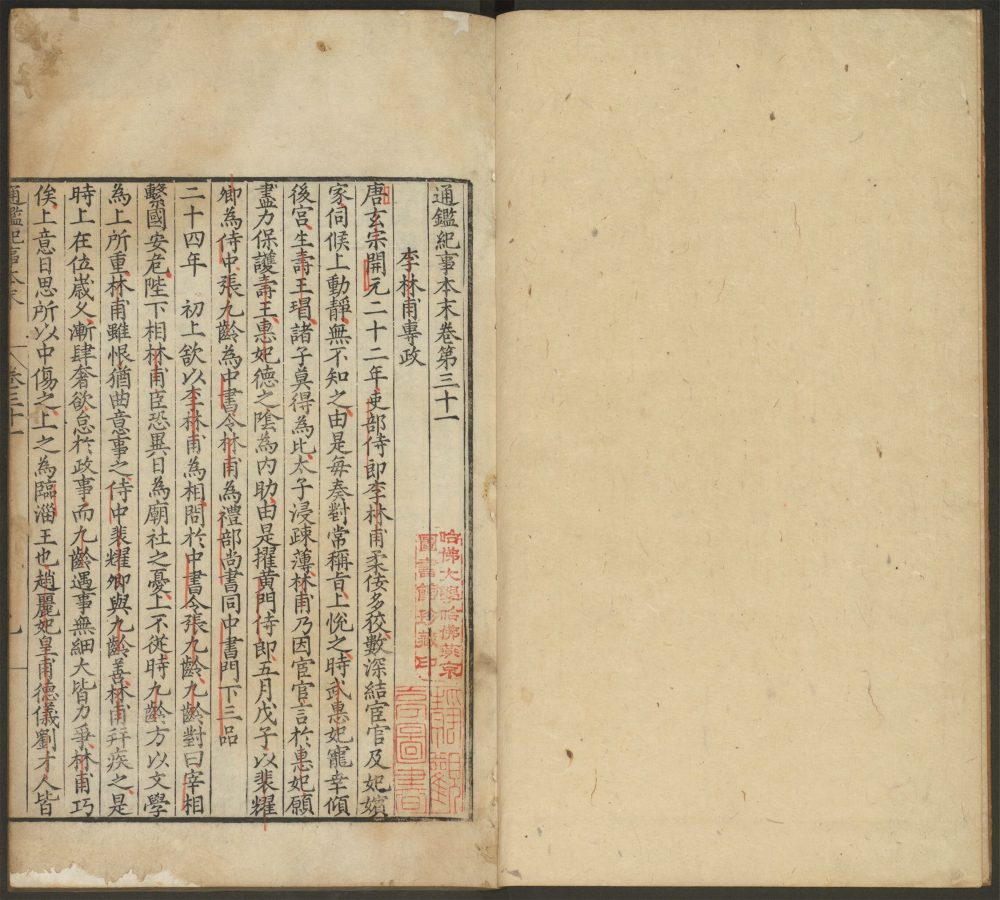 通鑑紀事本末卷第三十一
李林甫專政
唐玄宗開元二十二年吏部侍郎李林甫柔佞多狡數深結宦官及妃嬪
家伺候上動靜無不知之由是每奏對常稱旨上悅之時武惠妃寵幸傾
後宮生壽王瑁諸子莫得為比太子浸疎薄林甫乃因宦官言於惠妃願
盡力保護壽王惠妃德之陰為內助由是擢黃門侍郎五月戊子以裴耀
卿為侍中張九齡為中書令林甫為禮部尚書同中書門下三品
二十四年 初上欲以李林甫為相問於中書令張九齡九齡對曰宰相
繫國安危陛下相林甫臣恐異日為廟社之憂上不從時九齡方以文學
為上所重林甫雖恨猶曲意事之侍中裴耀卿與九齡善林甫并疾之是
時上在位歲久漸肆奢欲怠於政事而九齡遇事無細大皆力爭林甫巧
俟上意日思所以中傷之上之為臨淄王也趙麗妃皇甫德儀劉才人皆
通鑑紀事本末 卷三十一
哈佛大學哈佛燕京
圖書館珍藏印
圖書